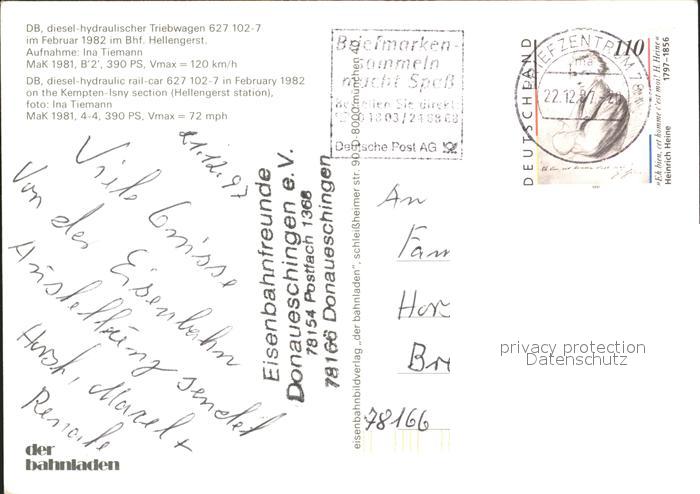 DB, diesel-hydraulischer Triebwagen 627 102-7
im Februar 1982 im Bhf. Hellengerst.
Aufnahme: Ina Tiemann
MaK 1981, B'2', 390 PS, Vmax = 120 km/h
DB, diesel-hydraulic rail-car 627 102-7 in February 1982
on the Kempten-Isny section (Hellengerst station),
foto: Ina Tiemann
MaK 1981, 4-4, 390 PS, Vmax = 72 mph
21.12.97
Viele Grüsse
Von der Eisenbahn
Ausstellung sendet
Horst, Marcel +
Renate
der
bahnladen
Eisenbahnfreunde
Donaueschingen e.V.
78154 Postfach 1368
78166 Donaueschingen
eisenbahnbildverlag „der bahnladen", schleißheimer str. 90, d-8000 münchen 40
Briefmarken-
sammeln
macht Spaß
Bestellen Sie direkt:
Deutsche Post AG
BRIEFZENTRUM 78
22.12.97
DEUTSCHLAND
110
»Eh bien, cet homme c'est moi« H. Heine
1797–1856
Heinrich Heine
An
Fam
Hor
Bre
78166
privacy protection
Datenschutz